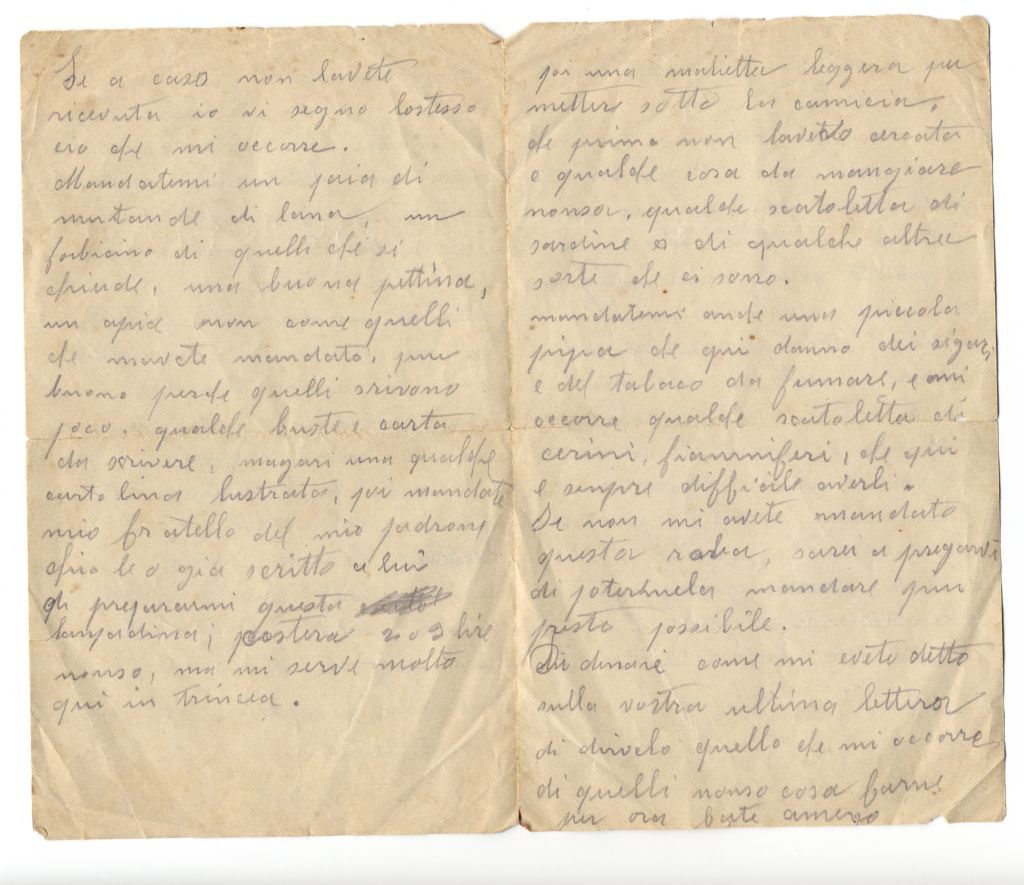 Se a caso non lavete
ricevuta io vi segno lostesso
cio che mi occorre.
Mandatemi un paia di
mutande di lana, un
forbicino di quelli che si
chiude, una buona pettina,
un apis non come quelli
che mavete mandato, piu
buono perche quelli srivono
poco. qualche buste e carta
da scrivere, magari una qualche
cartolina lustrata, poi mandate
mio fratello del mio padrone
che le o gia scritto a lui
di prepararmi questa
lanpadina; costera 2 o 3 lire
nonso, ma mi serve molto
qui in trincea.
poi una malietta leggera per
metter sotto la camicia,
che prima non lavevo cercata
e qualche cosa da mangiare
nonso, qualche scatoletta di
sardine o di qualche altra
sorte che ci sono.
mandatemi anche una piccola
pipa che qui danno dei sigari
e del tabaco da fumare, e mi
occorre qualche scatoletta di
cerini, fiammiferi, che qui
e senpre difficile averli.
Se non mi avete mandato
questa roba, sarei a pregarvi
di potermela mandare piu
presto possibile.
Di denari come mi evete detto
sulla vostra ultima lettera
di dirvelo quello che mi occorre
di quelli nonso cosa farne
per ora